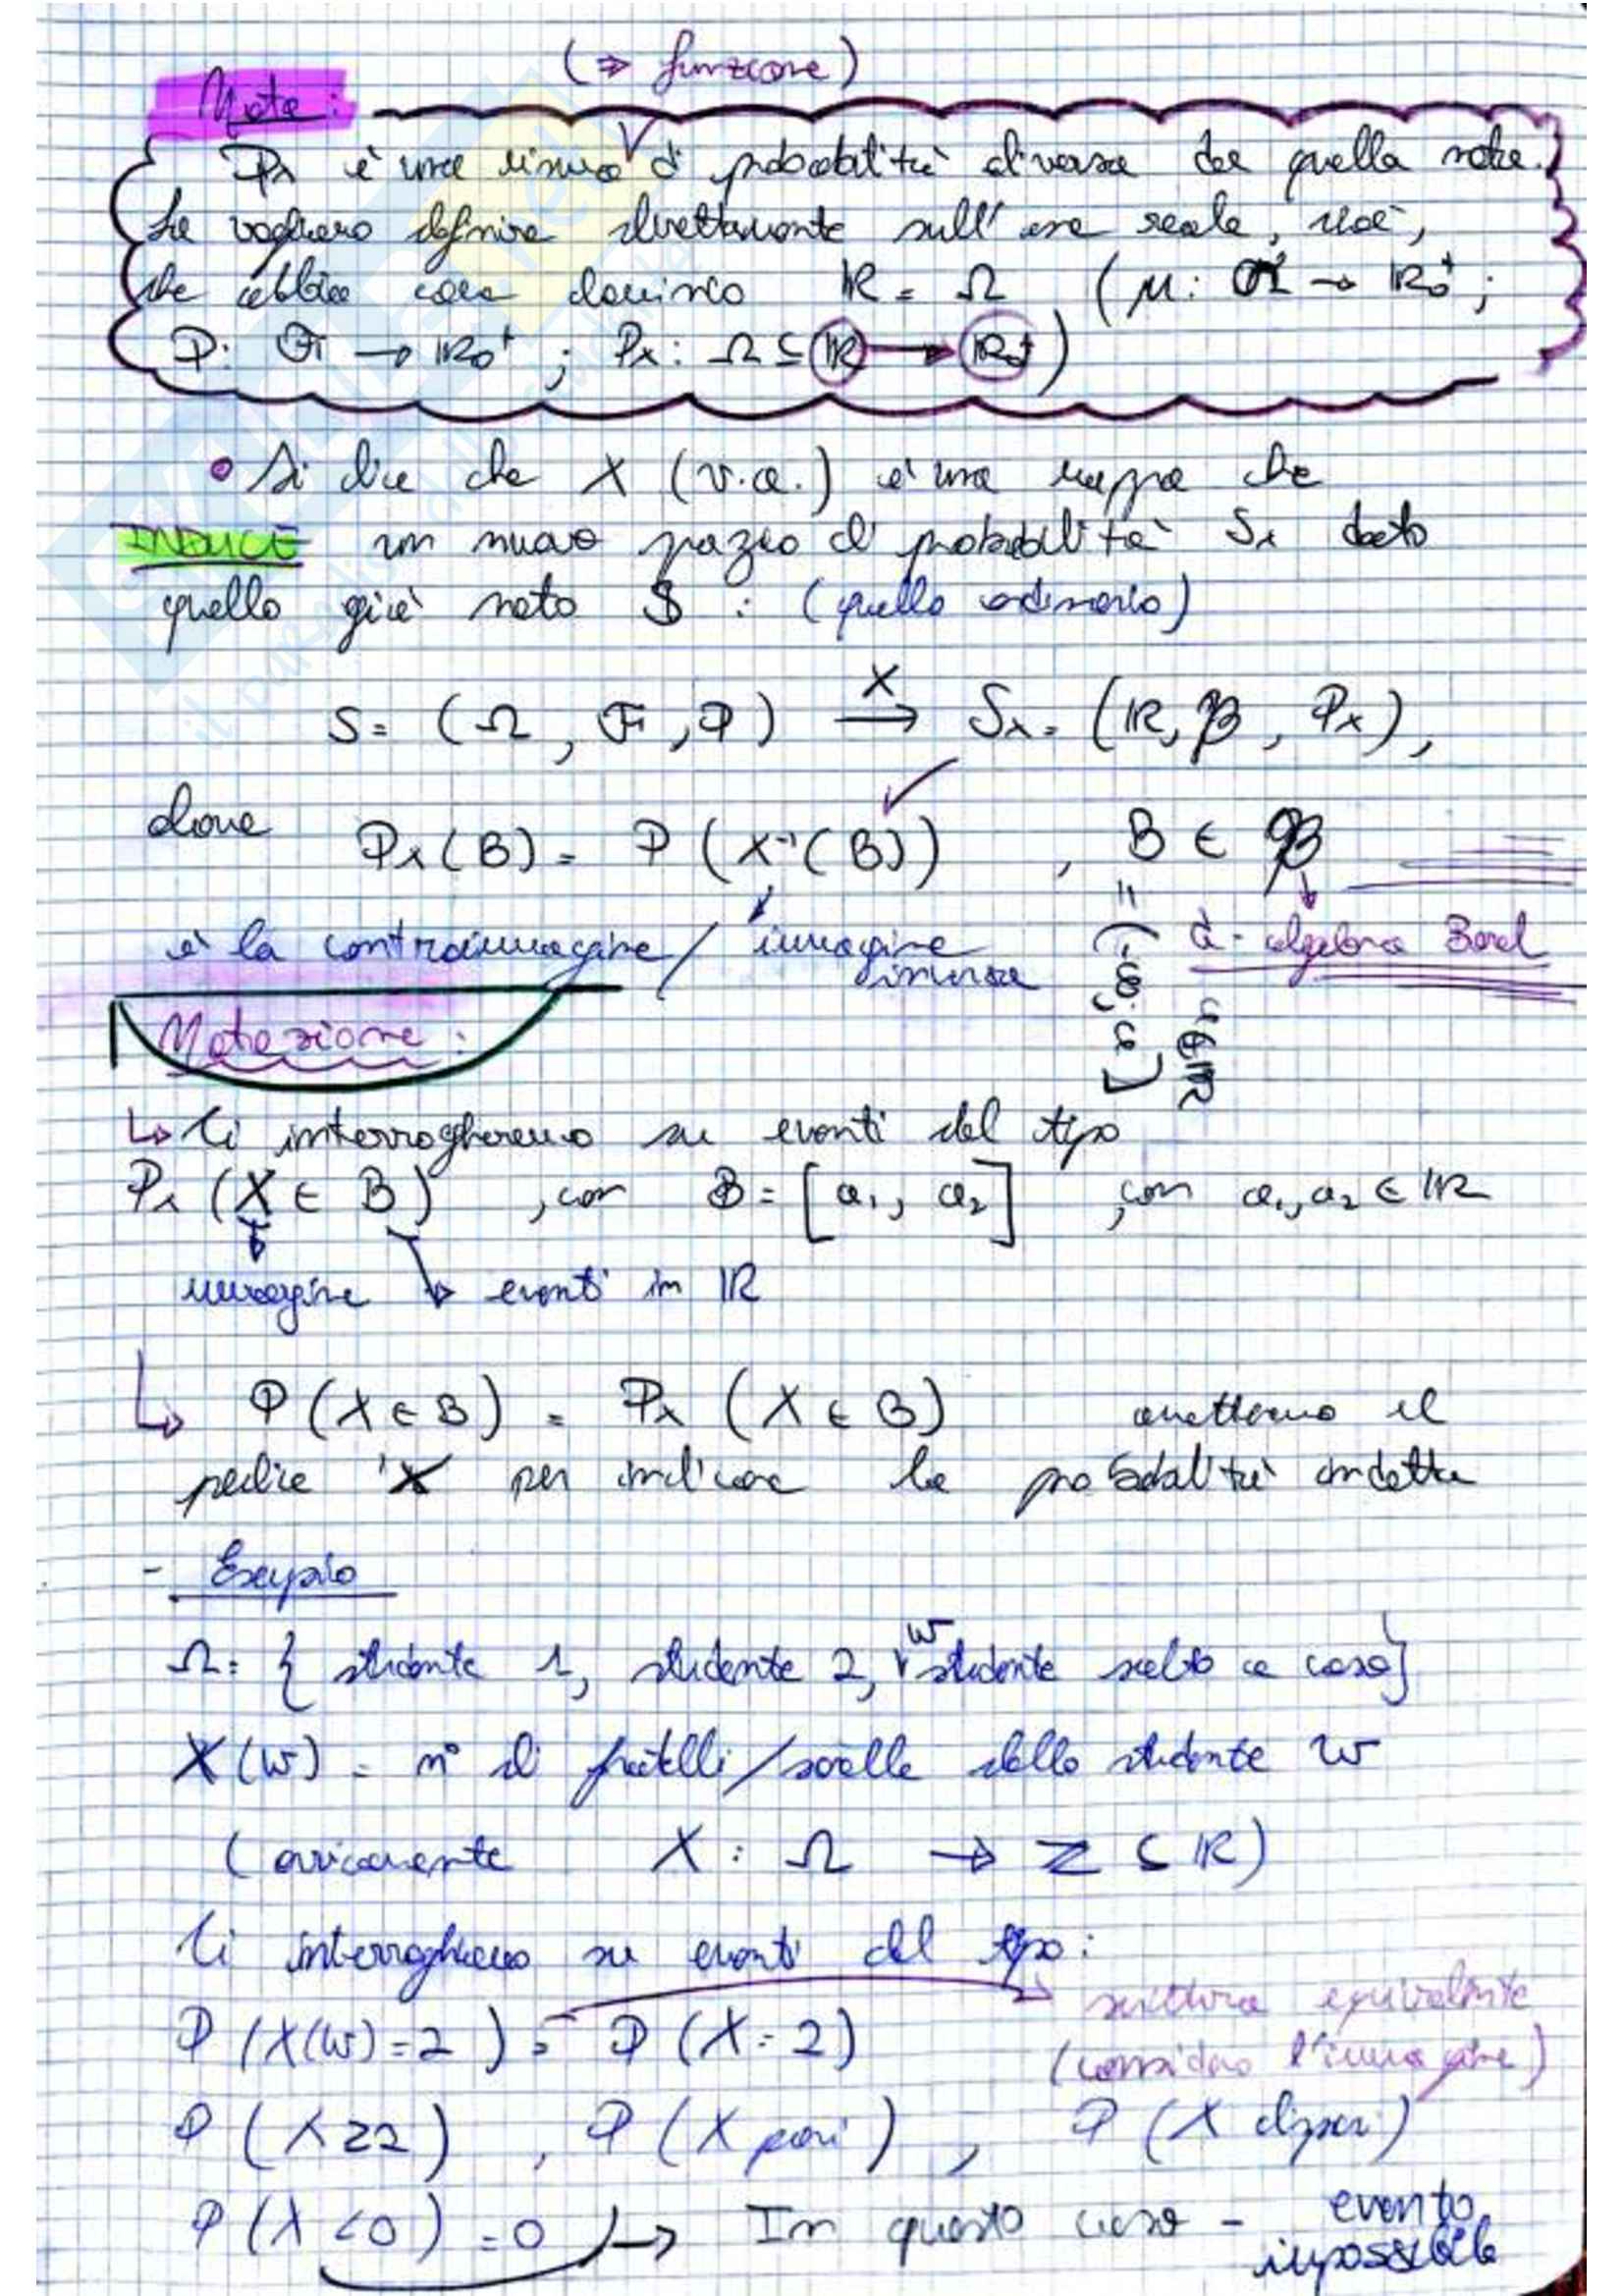 (⇒ funzione)
Nota:
Px è una misura di probabilità diversa da quella nota.
La vogliamo definire direttamente sull'asse reale, cioè,
che abbia come dominio ℝ = Ω (μ: 𝒜 → ℝ₀⁺ ;
P: ℱ → ℝ₀⁺ ; Px: Ω ⊆ ℝ → ℝ₀⁺)
• Si dice che X (v.a.) è una mappa che
INDUCE un nuovo spazio di probabilità Sx dato
quello già noto S : (quello ordinario)
S = (Ω, ℱ, P) →ˣ Sx = (ℝ, ℬ, Px),
dove Px(B) = P(X⁻¹(B)) , B ∈ ℬ
è la controimmagine / immagine inversa
σ-algebra Borel
= (-∞; a] a∈ℝ
Notazione:
↳ Ci interrogheremo su eventi del tipo
Px (X ∈ B) , con B = [a₁, a₂] , con a₁, a₂ ∈ ℝ
immagine eventi in ℝ
↳ P(X ∈ B) = Px (X ∈ B) omettiamo il
pedice 'X' per indicare la probabilità indotta
- Esempio
Ω = { studente 1, studente 2, studente scelto a caso}
w
X(w) = n° di fratelli/sorelle dello studente w
(ovviamente X : Ω → ℤ ⊆ ℝ)
Ci interroghiamo su eventi del tipo:
scrittura equivalente
P(X(w) = 2) = P(X = 2)
(considero l'immagine)
P(X ≥ 2) , P(X pari) , P(X dispari)
P(X < 0) = 0 → In questo caso - evento
impossibile